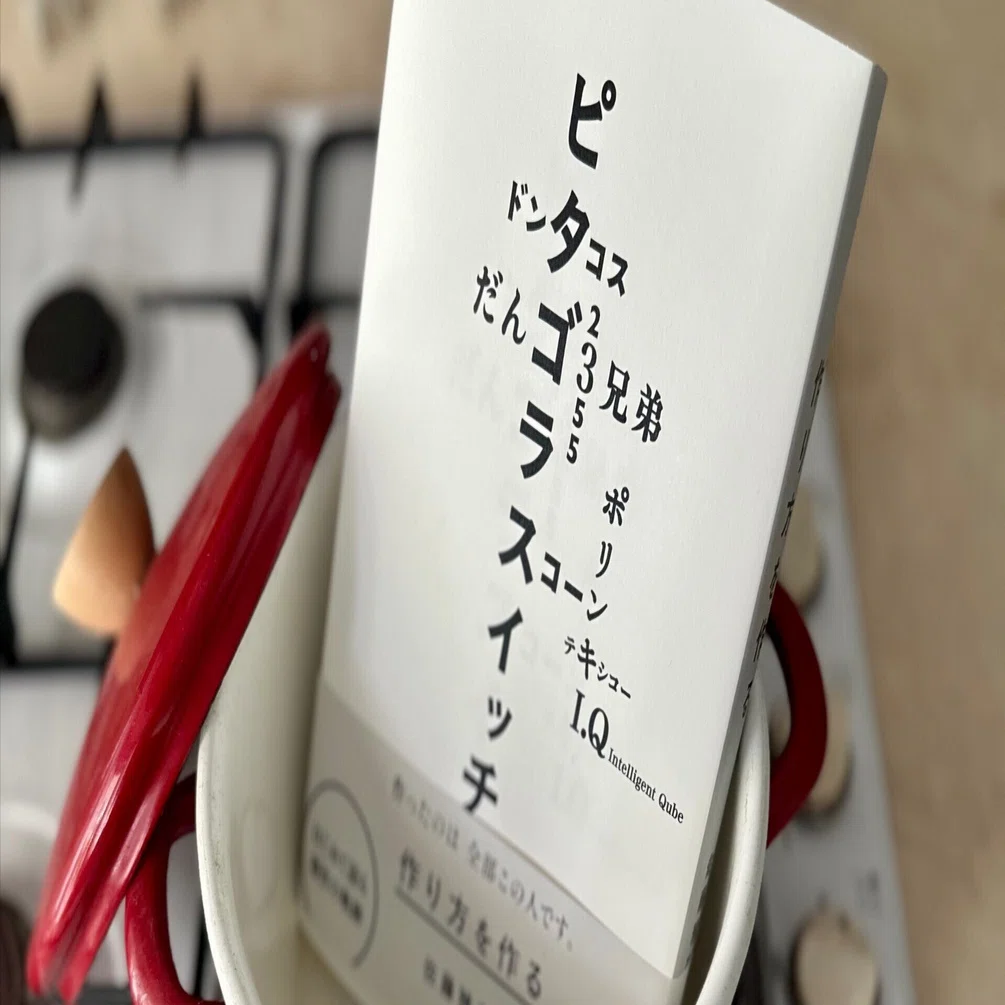 ピタゴラスイッチ
ドンタコス
だんご3兄弟
2355
ポリンキー
スコーン
テキシコー
I.Q Intelligent Qube
作ったのは 全部この人です。
作り方を作る